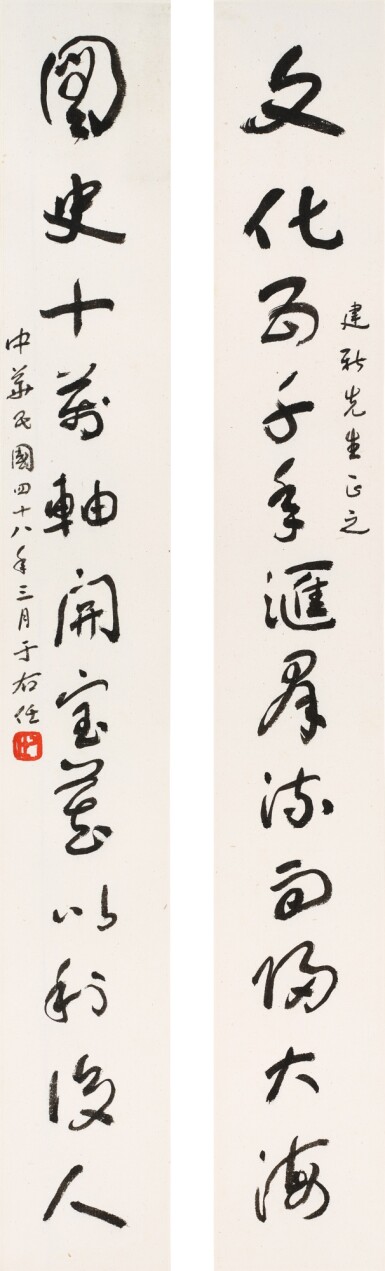 文化五千年匯羣流而歸大海
建新先生正之
圖史十萬軸開寶藏以利後人
中華民國四十八年三月于右任